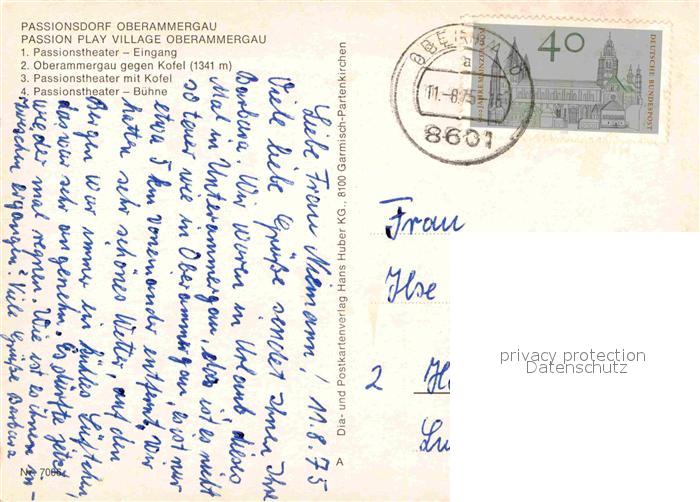 PASSIONSDORF OBERAMMERGAU
PASSION PLAY VILLAGE OBERAMMERGAU
1. Passionstheater – Eingang
2. Oberammergau gegen Kofel (1341 m)
3. Passionstheater mit Kofel
4. Passionstheater – Bühne
Liebe Frau Niemann! 11.8.75
Viele liebe Grüße sendet Ihnen Ihre
Barbara. Wir waren in Urlaub dieses
Mal in Unterammergau, das ist es nicht
so teuer wie in Oberammergau, es ist nur
etwa 5 km voneinander entfernt. Wir
hatten sehr schönes Wetter, auf den
Bergen war immer ein kühles Lüftchen,
das war sehr angenehm. Es dürfte jetzt
wieder mal regnen. Wie ist es ihnen in-
zwischen ergangen? Viele Grüße Barbara
Nr. 7006
Dia- und Postkartenverlag Hans Huber KG., 8100 Garmisch-Partenkirchen
A
11.-8.75
8601
40
DEUTSCHE BUNDESPOST
Frau
Ilse
2
privacy protection
Datenschutz